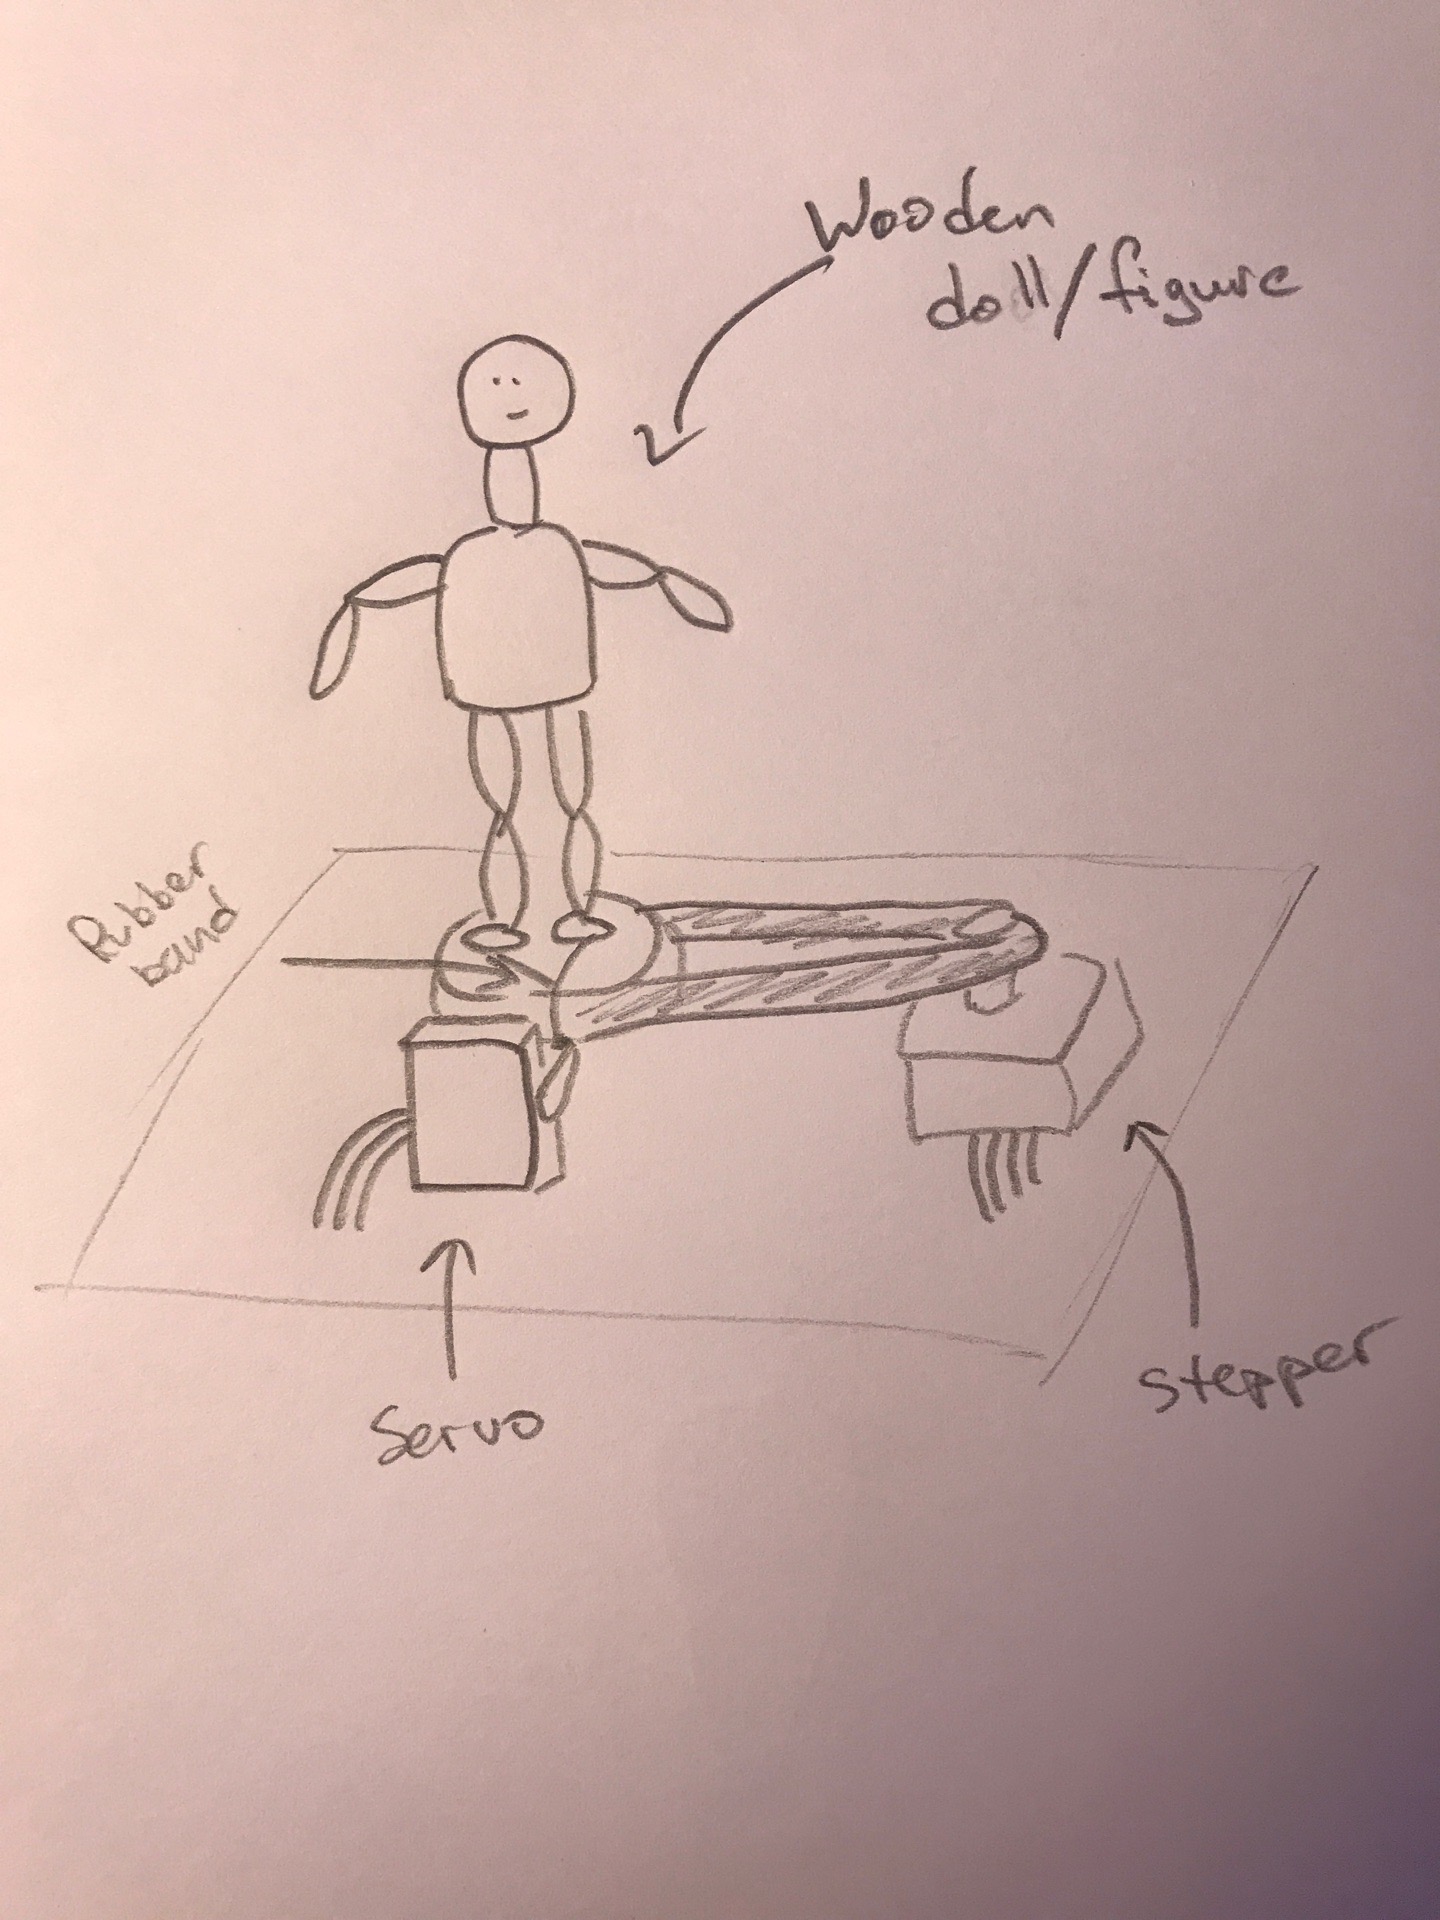 Wooden
doll/figure
Rubber
band
Servo
stepper